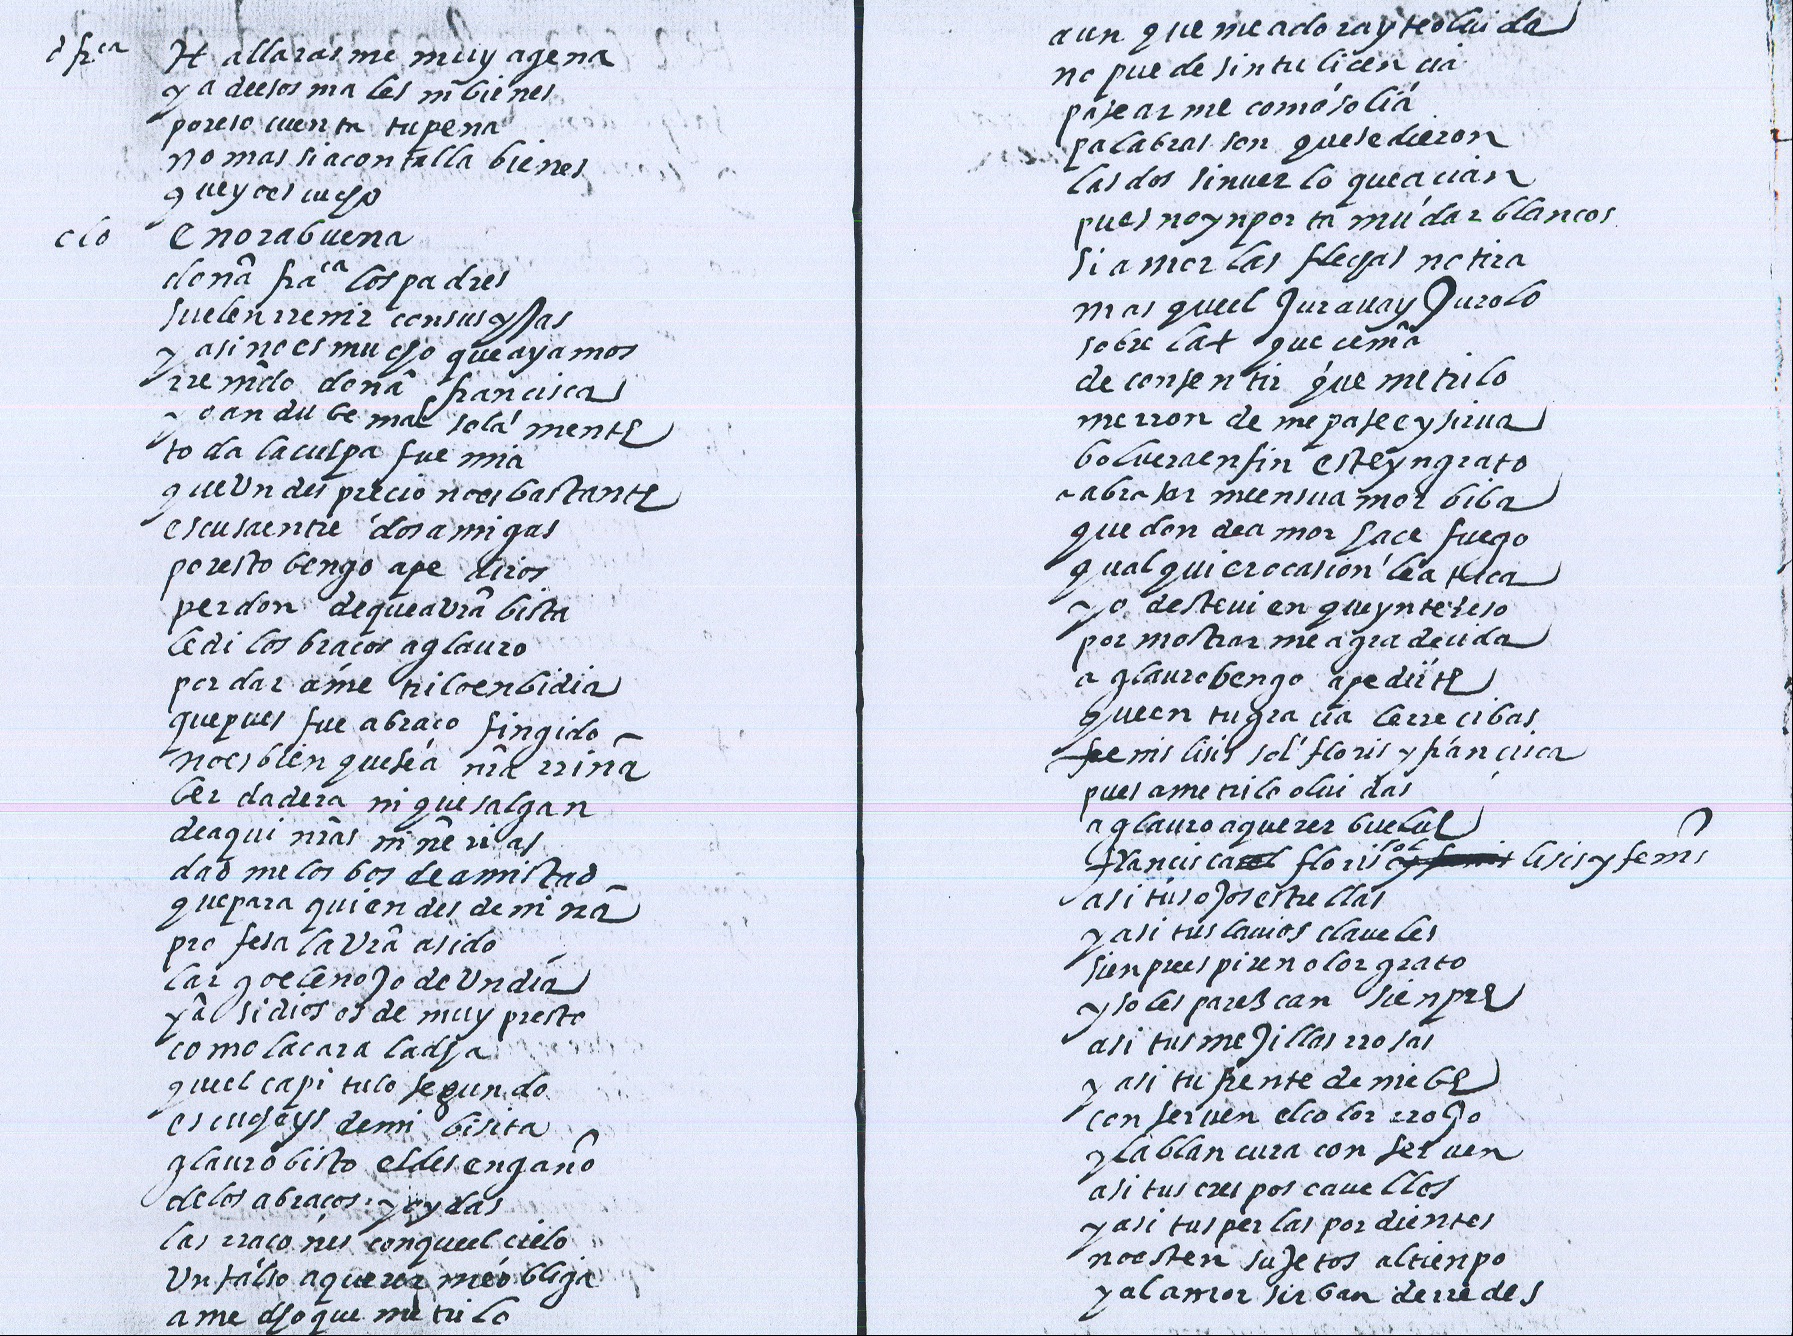 d fr.ca H allarasme muy agena
ya deesos males ni bienes
poreso cuenta tu pena
no mas siacontalla bienes
queyo escucho
clo enorabuena
dona fra.ca los padres
suelen rrenir consus yjas
y asi no es mucho que ayamos
rrenido dona francisca
yo andube mal sola mente
toda laculpa fue mia
que Un desprecio noes bastante
escusa entre dos amigas
poresto bengo ape diros
perdon dequea Vra bista
le di los bracos aglauro
por dar ame triloenbidia
quepues fue abraco fingido
noes bien quesea nra rrina
ber dadera ni que salgan
deaqui nras ninerias
dad me los bos de amistad
quepara quien des de nina
profesa la Vra asido
largo el eno Jo de Un dia
ya si dios os de muy presto
como lacara ladha
quel capi tulo segundo
escucheys demi bisita
glauro bisto eldesengano
delos abracos y oydas
las rracones conqueel cielo
Un falso aquerer me obliga
a me dho que me trilo
aun que me adora y te oluida
no puede sin tu licencia
pasearme como solia
palabras son quesedieron
las dos sinuer lo queacian
pues no ynporta mudar blancos
si amor las flechas no tira
mas queel Juraua y Jurolo
sobre la +
de consentir que metrilo
merron de me pasee y sirua
boluera enfin este yngrato
a abrasar meensu amor biba
que don dea mor hace fuego
qual qui erocasion lea tica
yo desteui en queyntereso
por mostrar me agra decida
a glauro bengo apedirte
queen tu gracia lerrecibas
femis lisis sol floris y francisca
pues ametrilo oluidas
aglauro aquerer buelue
francisca floris sol lisis y femis
asi tus oJos estrellas
y asi tus lauios claueles
sienpre espiren olor grato
y soles parezcan sienpre
asi tus meJillas rrosas
y asi tu frente de niebe
conseruen elcolor rroJo
y la blancura conseruen
asi tus crespos cauellos
y asi tus perlas por dientes
noesten suJetos altienpo
y al amor sirban derredes